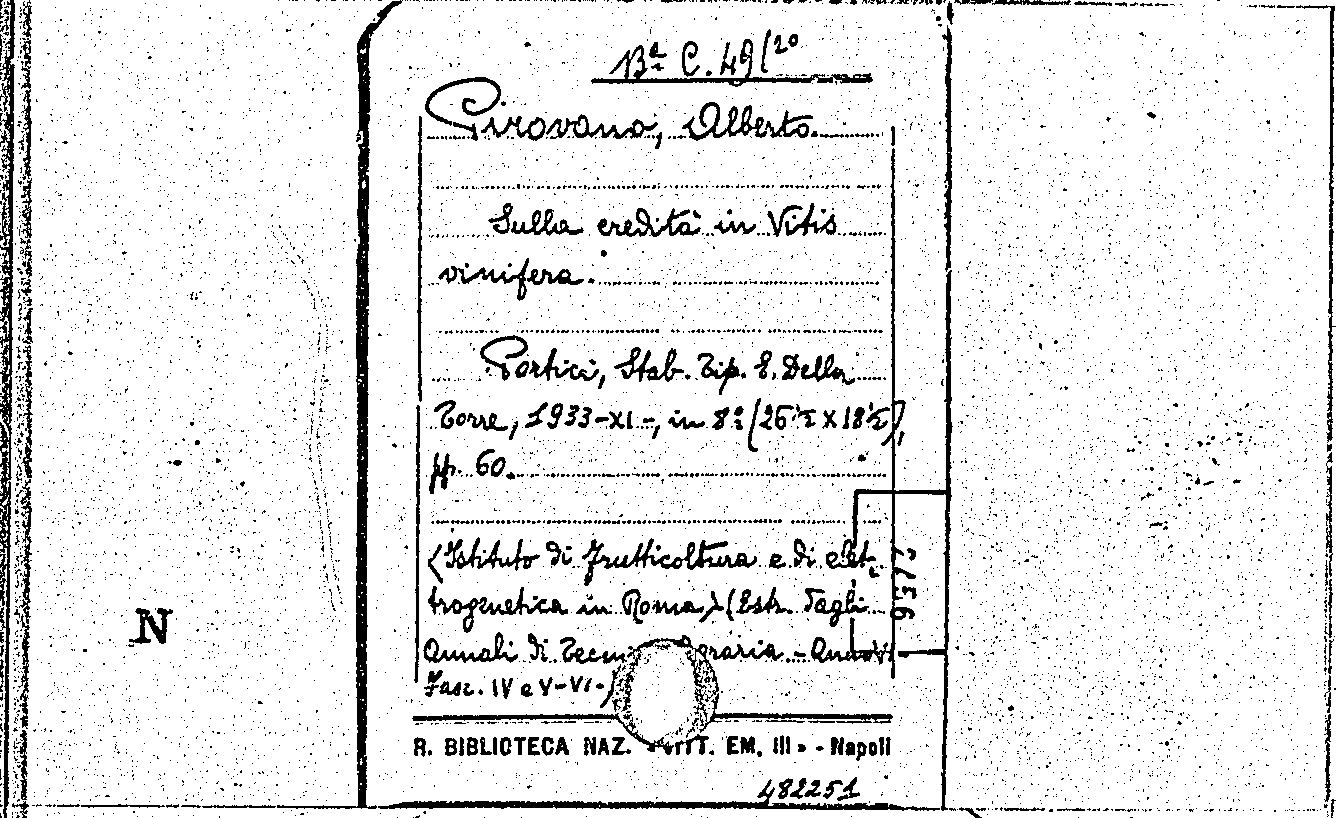 Bª C. 49(20
Pirovano, Alberto.
Sulla eredità in Vitis
vinifera.
Portici, Stab. Tip. E. Della
Torre, 1933-XI-, in 8º (26½ x 18½),
pp. 60.
(Istituto di Frutticoltura e di elet-
trogenetica in Roma) (Estr. Dagli
Annali di Tecn Agraria - Anno VI
Fasc. IV e V-VI-)
R. BIBLIOTECA NAZ. « VITT. EM. III » - Napoli
482251
N